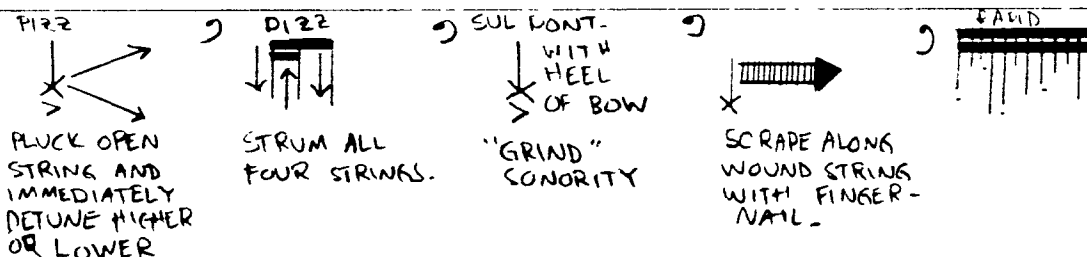 PIZZ
PLUCK OPEN
STRING AND
IMMEDIATELY
DETUNE HIGHER
OR LOWER
PIZZ
STRUM ALL
FOUR STRINGS.
SUL PONT.
WITH
HEEL
OF BOW
"GRIND"
SONORITY
SCRAPE ALONG
WOUND STRING
WITH FINGER-
NAIL.